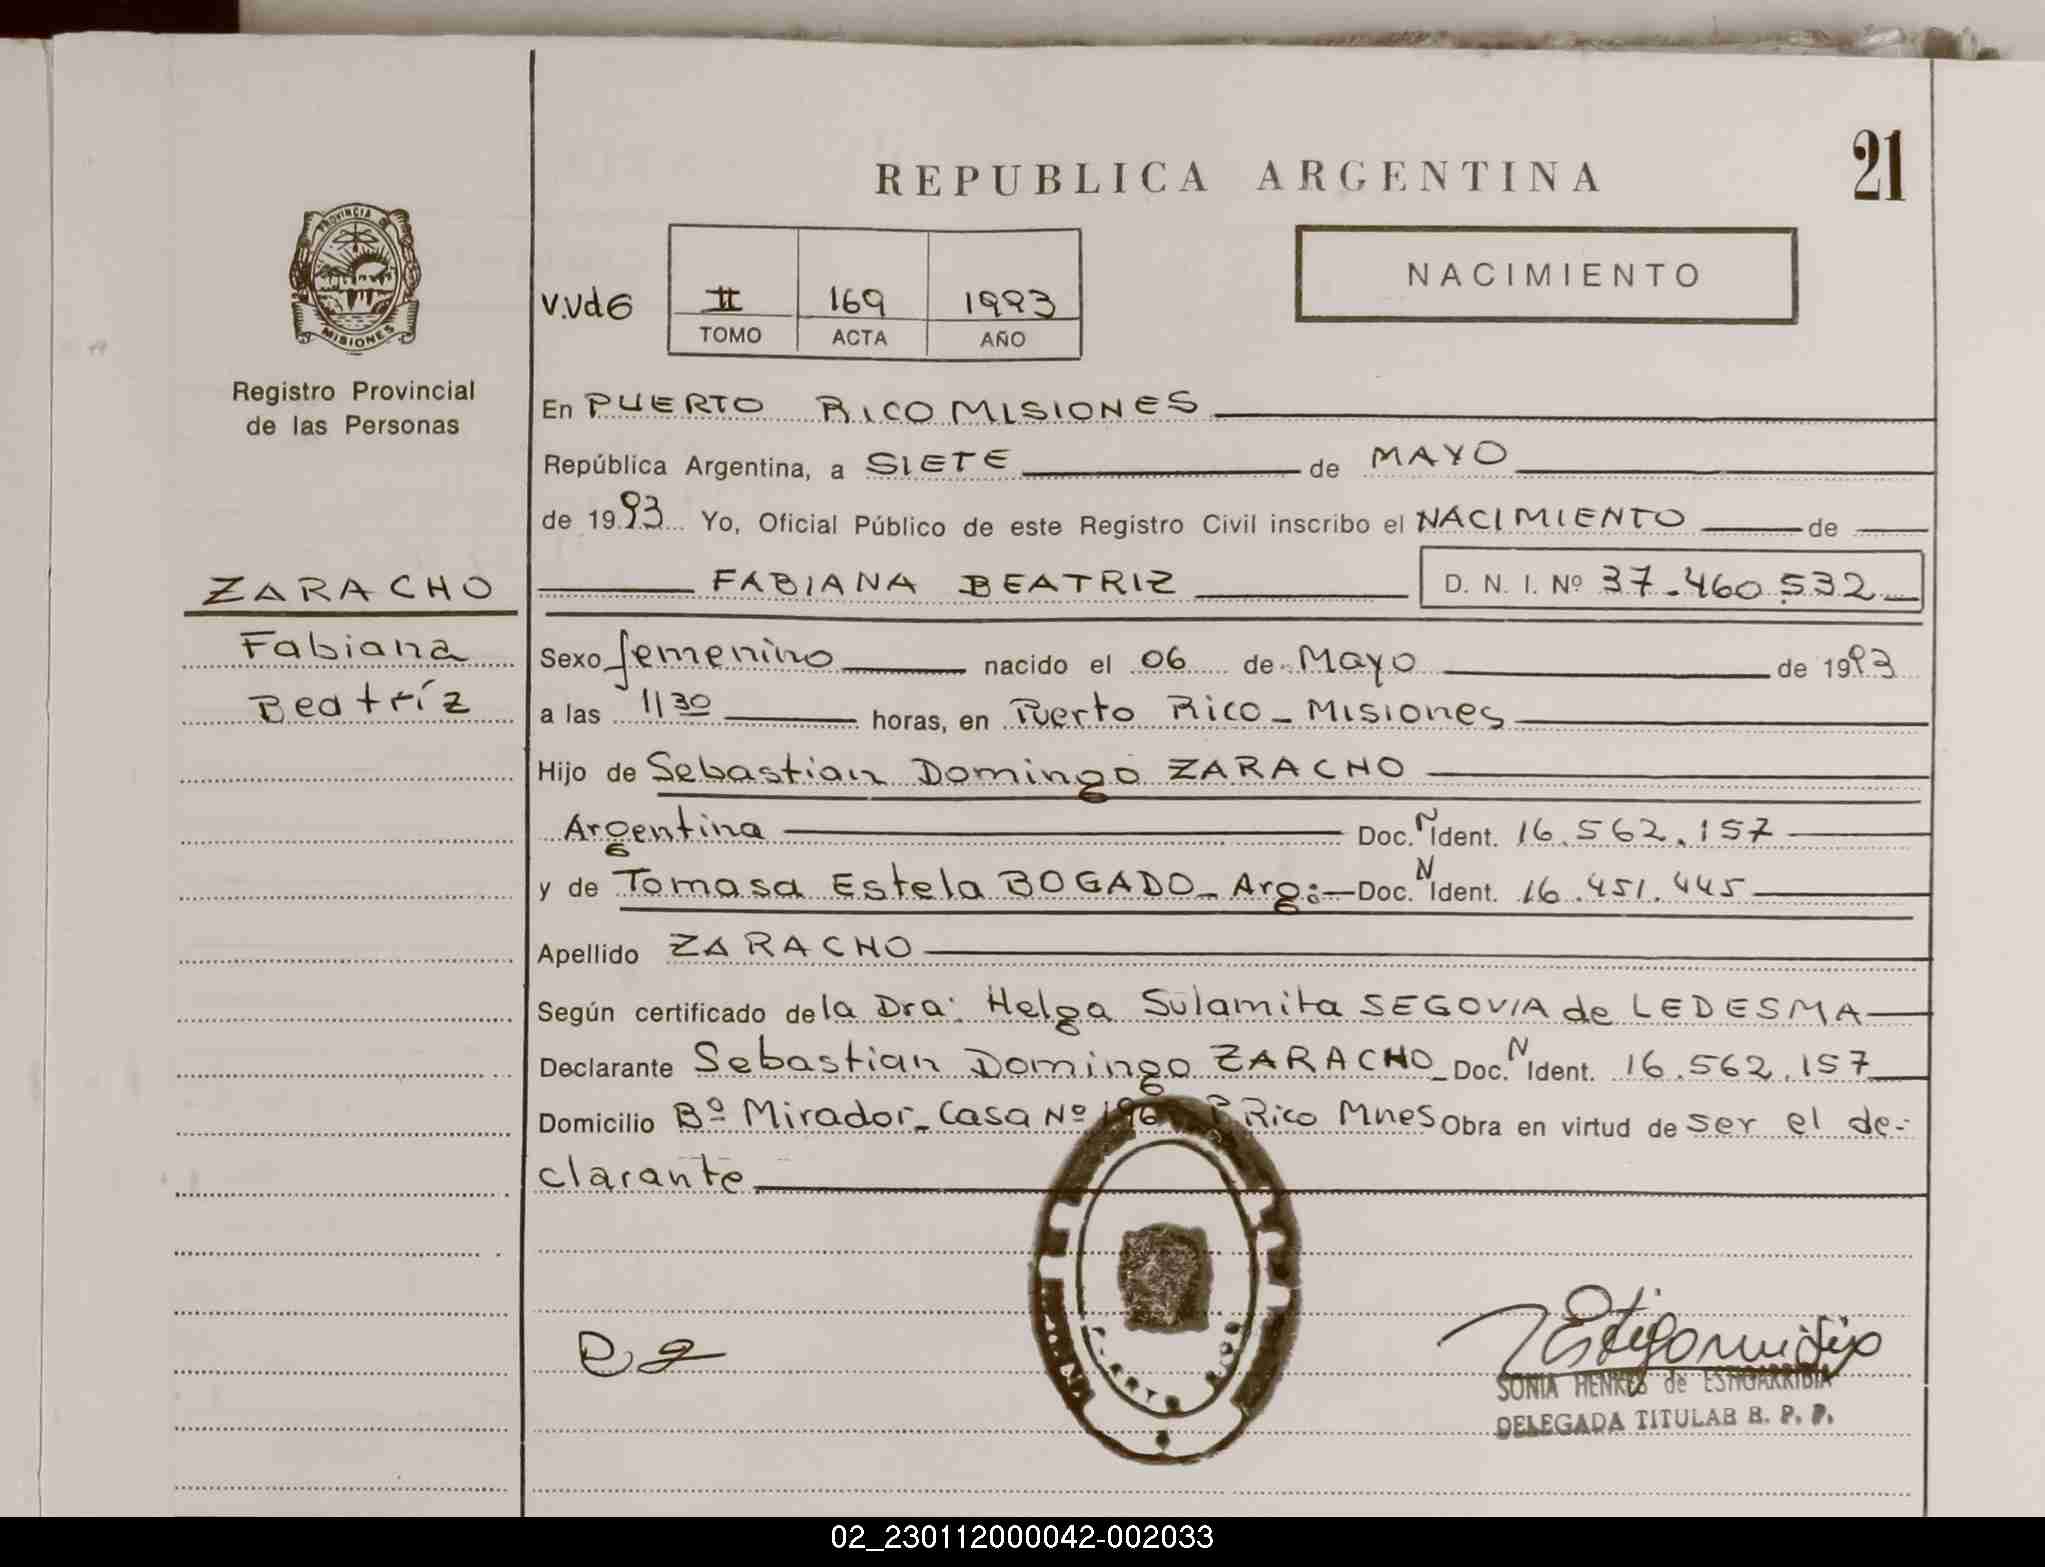 21
REPUBLICA ARGENTINA
NACIMIENTO
PROVINCIA DE
MISIONES
Registro Provincial
de las Personas
V.Vd6
II 169 1993
TOMO ACTA AÑO
En PUERTO RICO MISIONES
República Argentina, a SIETE de MAYO
de 1993 Yo, Oficial Público de este Registro Civil inscribo el NACIMIENTO de
ZARACHO
Fabiana
Beatríz
FABIANA BEATRIZ D. N. I. Nº 37.460.532
Sexo femenino nacido el 06 de Mayo de 1993
a las 11 30 horas, en Puerto Rico - Misiones
Hijo de Sebastian Domingo ZARACHO
Argentina Doc. N Ident. 16.562.157
y de Tomasa Estela BOGADO - Arg: Doc. N Ident. 16.451.445
Apellido ZARACHO
Según certificado de la Dra: Helga Sulamita SEGOVIA de LEDESMA
Declarante Sebastian Domingo ZARACHO - Doc. N Ident. 16.562.157
Domicilio Bº Mirador - Casa Nº 196 P Rico Mnes Obra en virtud de ser el de-
clarante
SONIA HENKES de ESTIGARRIBIA
DELEGADA TITULAR R. P. P.
02_230112000042-002033